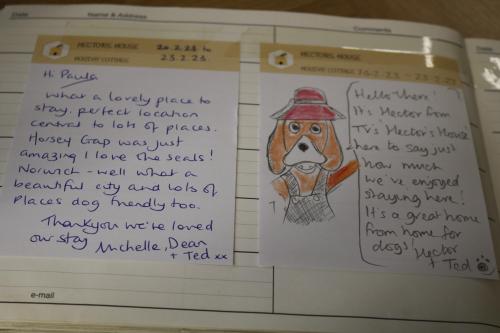 Date
Name & Address
Comments
Date
HECTORS HOUSE
HOLIDAY COTTAGE
20.2.23 to
23.2.23.
Hi Paula
What a lovely place to
stay. perfect location
central to lots of places.
Horsey Gap was just
amazing I love the seals!
Norwich - well what a
beautiful city and lots of
Places dog friendly too.
Thankyou we've loved
our stay
Michelle, Dean
+ Ted xx
HECTORS HOUSE
HOLIDAY COTTAGE 20-2-23 - 23-2-23
Hello there!
It's Hector from
TV's Hector's House
here to say just
how much
we've enjoyed
staying here!
It's a great home
from home for
dogs!
Hector
+ Ted
e-mail